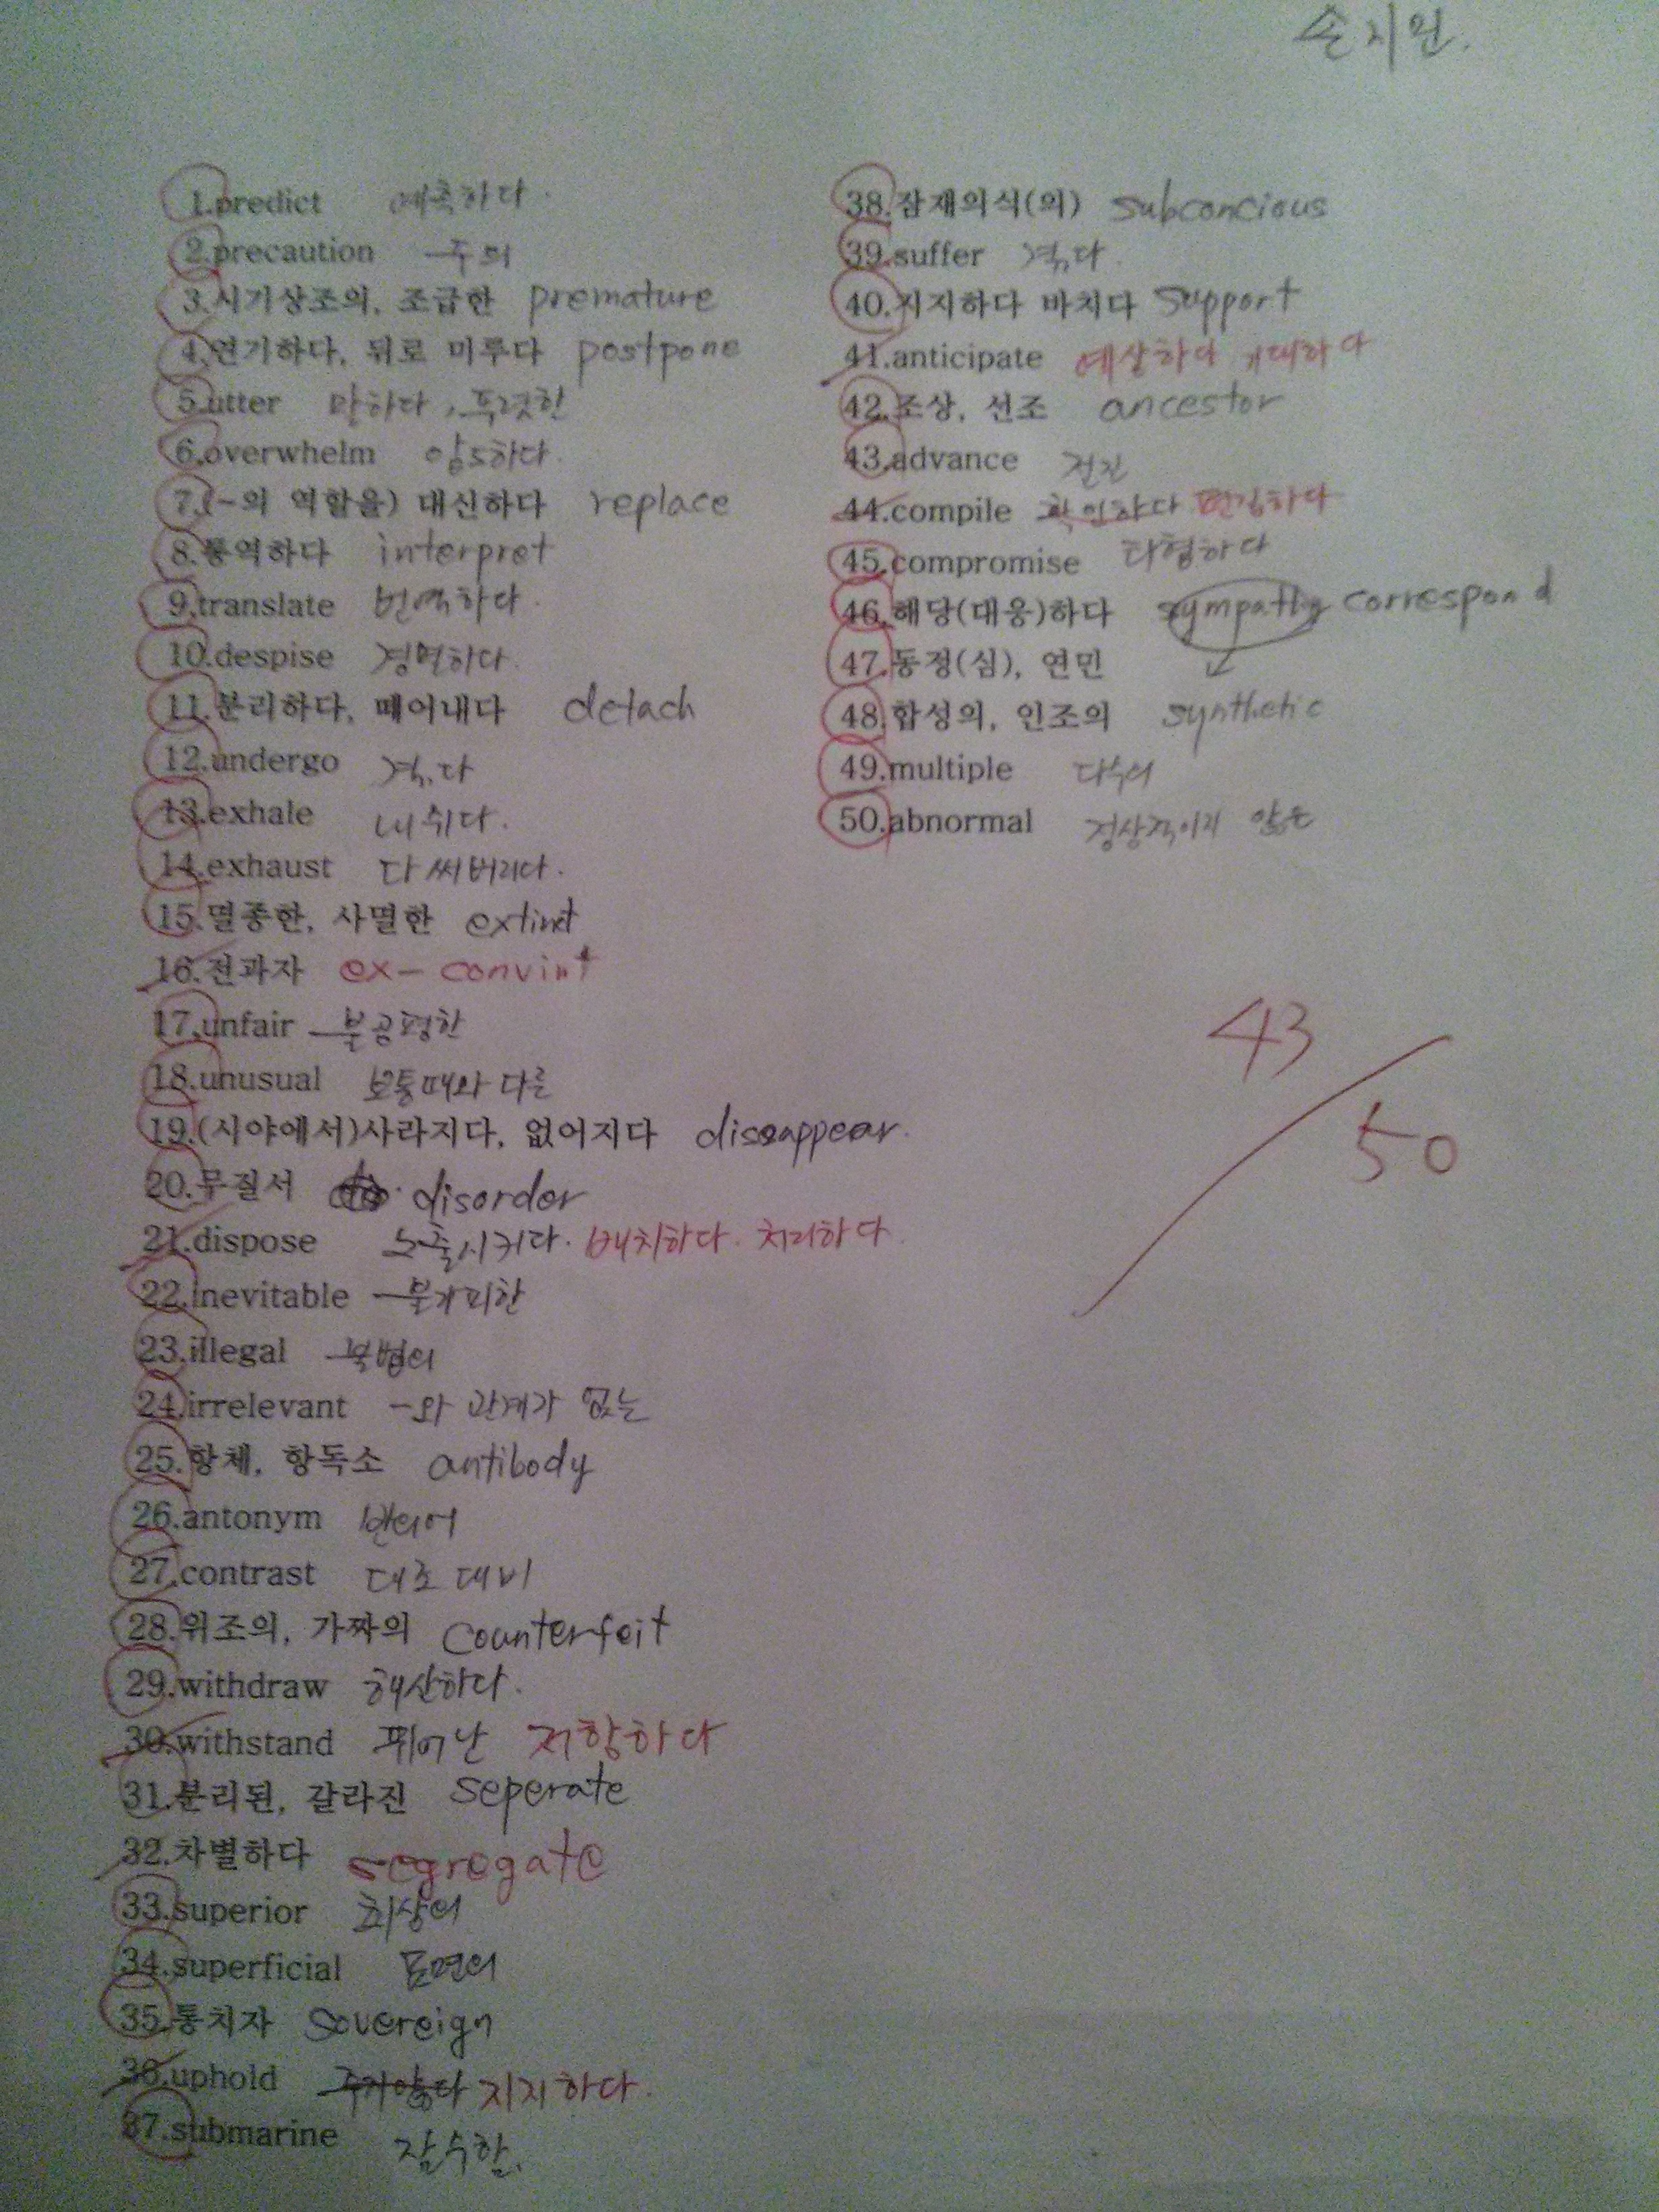 손지원.
1.predict 예측하다.
2.precaution 주의
3.시기상조의, 조급한 premature
4.연기하다, 뒤로 미루다 postpone
5.utter 말하다, 뚜렷한
6.overwhelm 압도하다.
7.(-의 역할을) 대신하다 replace
8.통역하다 interpret
9.translate 번역하다.
10.despise 경멸하다.
11.분리하다, 떼어내다 detach
12.undergo 겪다
13.exhale 내쉬다.
14.exhaust 다 써버리다.
15.멸종한, 사멸한 extinct
16.전과자 ex-
17.unfair 불공평한
18.unusual 보통때와 다른
19.(시야에서)사라지다, 없어지다 diseappear.
20.무질서 disorder
21.dispose 노출시키다. 배치하다. 처리하다.
22.inevitable 불가피한
23.illegal 불법의
24.irrelevant -와 관계가 없는
25.항체, 항독소 antibody
26.antonym 반의어
27.contrast 대조 대비
28.위조의, 가짜의 counterfeit
29.withdraw 해산하다.
30.withstand 뛰어난 저항하다
31.분리된, 갈라진 seperate
32.차별하다 segregate
33.superior 최상의
34.superficial 표면의
35.통치자 sovereign
36.uphold 지지하다.
37.submarine 잠수함.
38.잠재의식(의) subconcious
39.suffer 겪다.
40.지지하다 바치다 support
41.anticipate 예상하다 기대하다
42.조상, 선조 ancestor
43.advance 전진
44.compile 확인하다 편집하다
45.compromise 타협하다
46.해당(대응)하다 sympathy correspond
47.동정(심), 연민
48.합성의, 인조의 synthetic
49.multiple 다수의
50.abnormal 정상적이지 않은
43
50